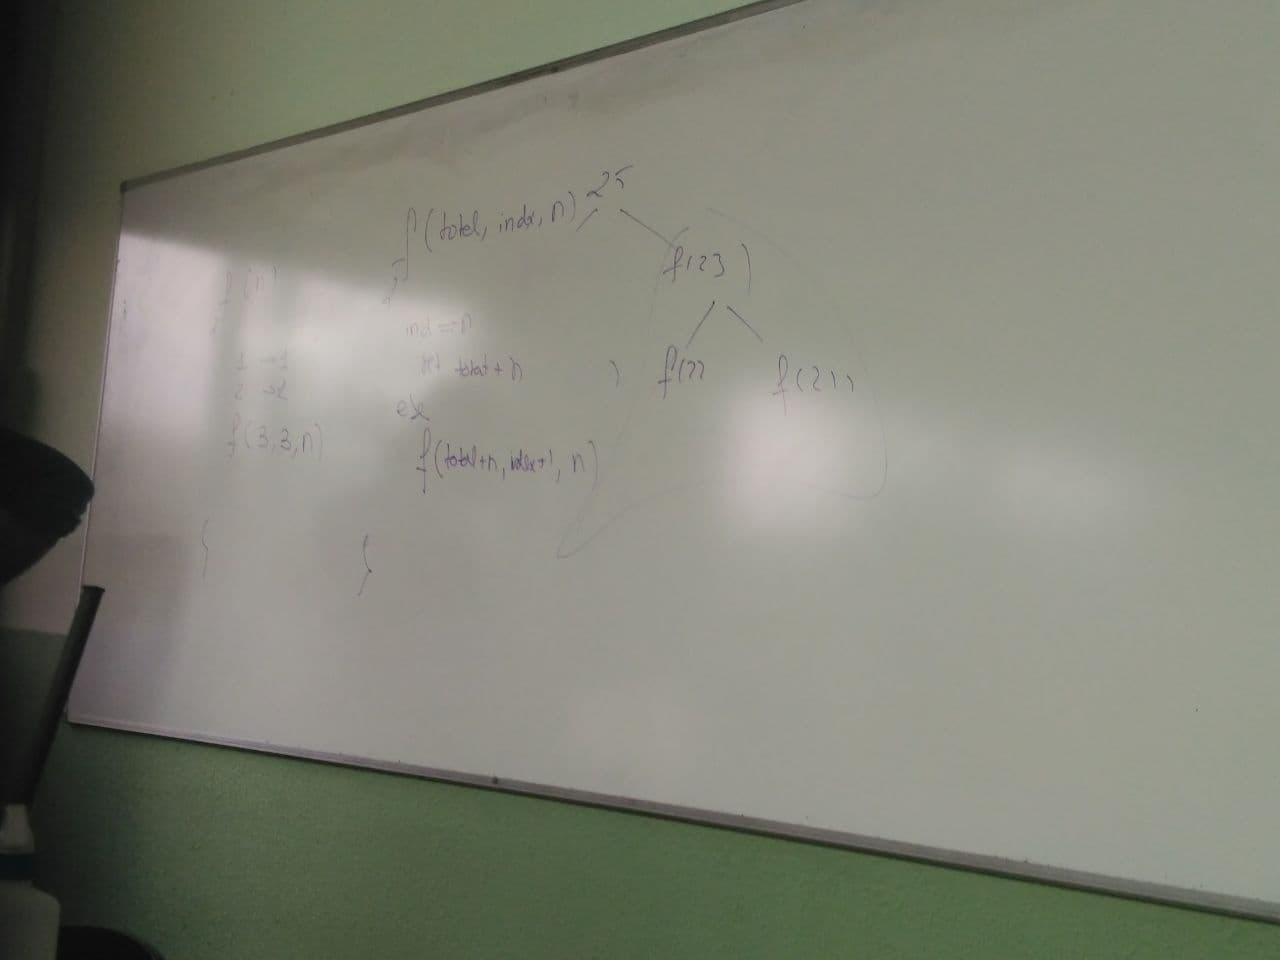 f(n)
1 → 1
2 → 2
f(3,3,n)
}
f(total, index, n)
{
ind == n
ret total + n
else
f(total+n, index+1, n)
}
25
f(23)
f(21)